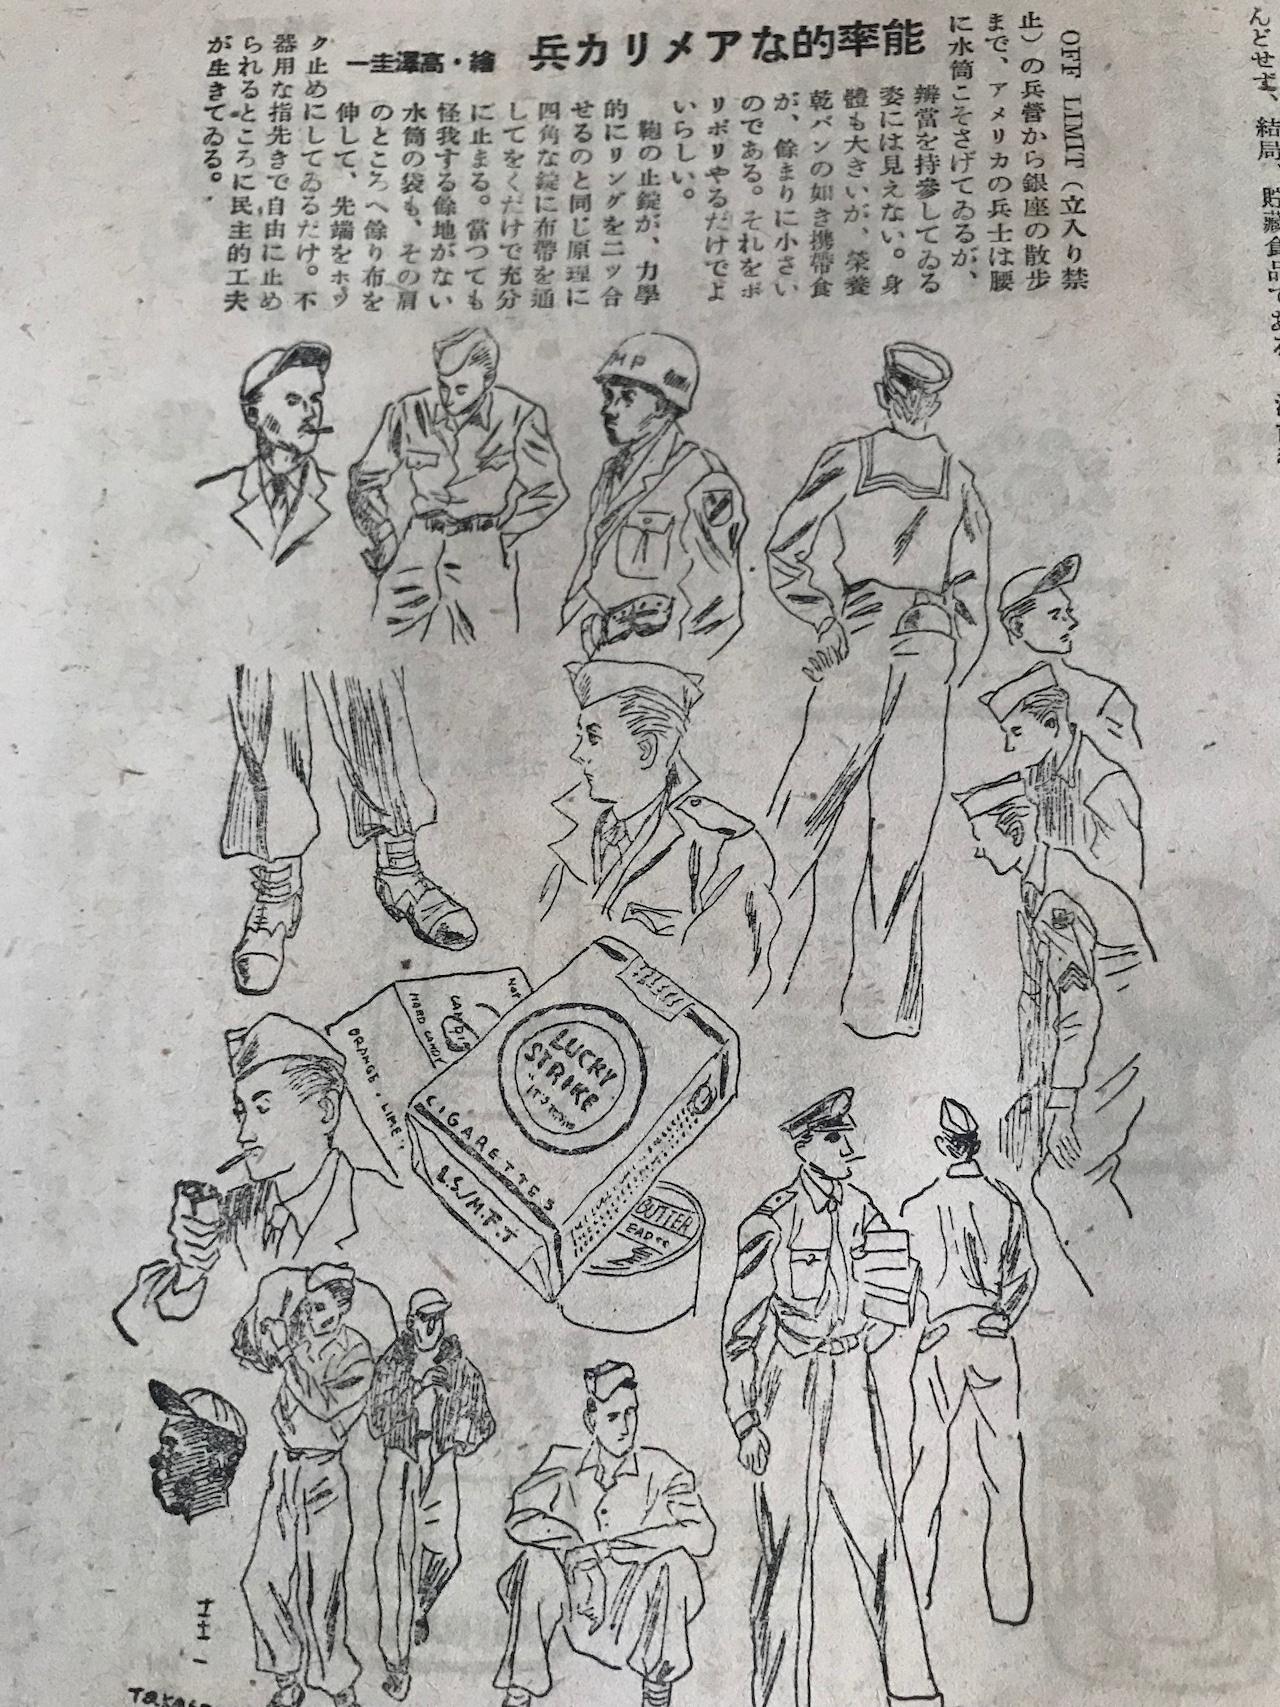 能率的なアメリカ兵
繪・高澤圭一
OFF LIMIT（立入り禁
止）の兵營から銀座の散歩
まで、アメリカの兵士は腰
に水筒こそさげてゐるが、
辨當を持參してゐる
姿には見えない。身
體も大きいが、榮養
乾パンの如き携帶食
が、餘まりに小さい
のである。それをポ
リポリやるだけでよ
いらしい。
鞄の止錠が、力學
的にリングを二ッ合
せるのと同じ原理に
四角な錠に布帶を通
してをくだけで充分
に止まる。當つても
怪我する餘地がない
水筒の袋も、その肩
のところへ餘り布を
伸して、先端をホッ
ク止めにしてゐるだけ。不
器用な指先きで自由に止め
られるところに民主的工夫
が生きてゐる。
MP
HARD CANDY
ORANGE・LIME
LUCKY
STRIKE
CIGARETTES
L.S./M.F.T
BUTTER
圭一
んどせず、結局、貯藏食品である